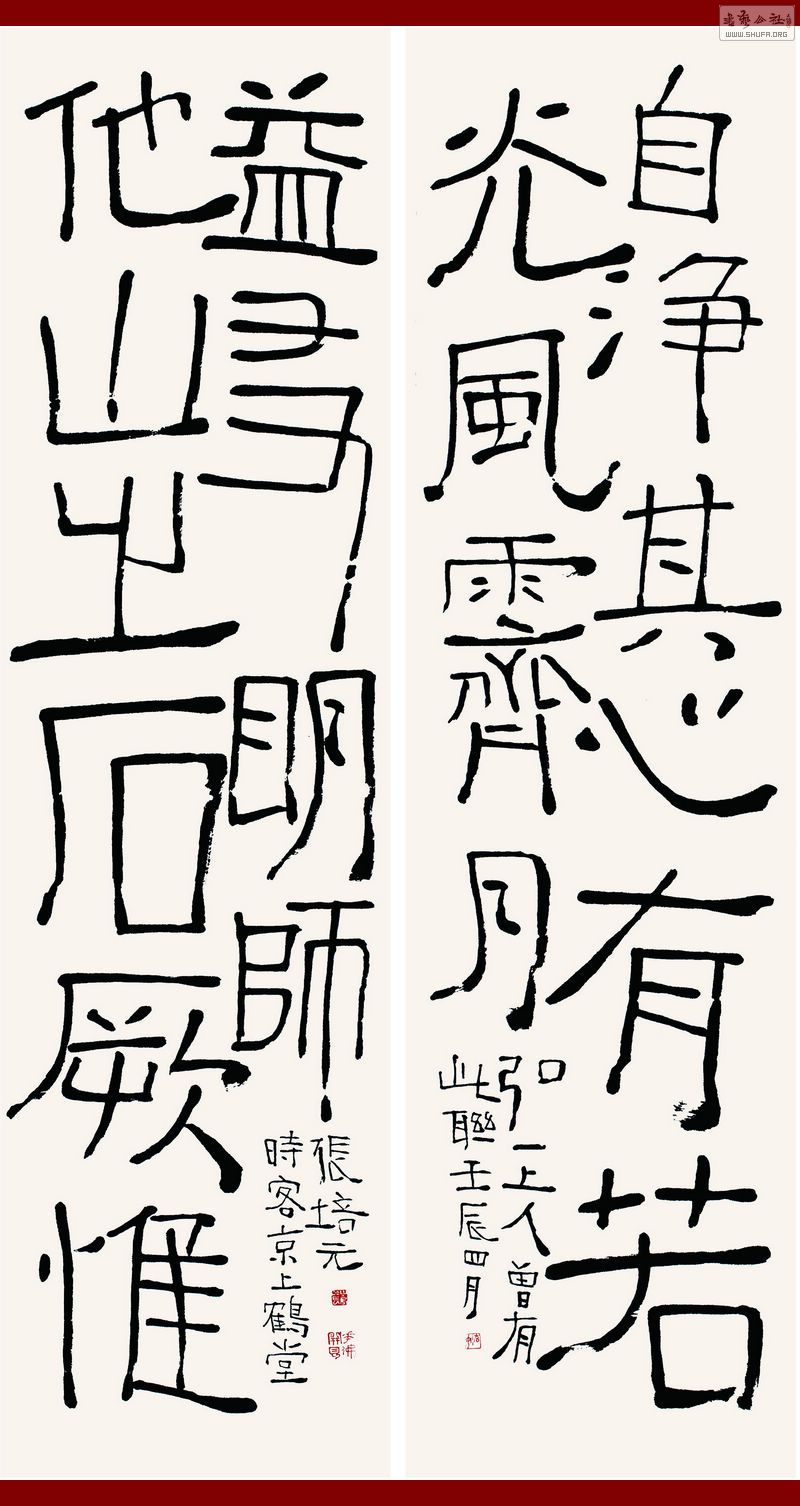 自浄其心有若
光風霽月
弘一上人曾有
此聯壬辰四月
他山之石厥惟
益友眀師
張培元
時客京上鶴堂
書藝公社
WWW.SHUFA.ORG